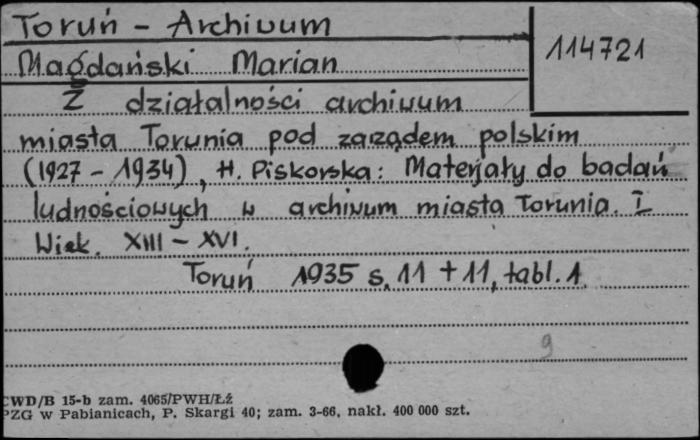 Toruń - Archiwum
114721
Magdański Marian
Z działalności archiwum
miasta Torunia pod zarządem polskim
(1927 - 1934), H. Piskorska: Materjały do badań
ludnościowych w archiwum miasta Torunia. I
Wiek. XIII - XVI.
Toruń 1935 s. 11 + 11, tabl. 1.
9
CWD/B 15-b zam. 4065/PWH/Łź
PZG w Pabianicach, P. Skargi 40; zam. 3-66, nakł. 400 000 szt.